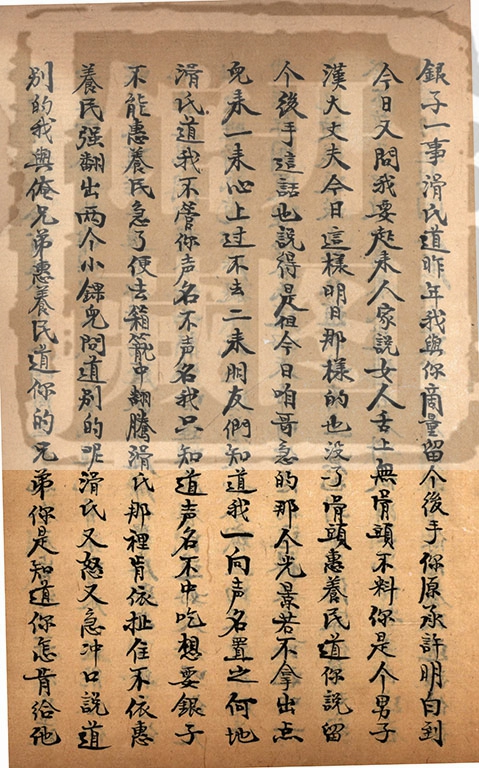 銀子一事滑氏道昨年我與你商量留个後手你原承許明白到
今日又問我要起来人家說女人舌上無骨頭不料你是个男子
漢大丈夫今日這樣明日那樣的也没了骨頭惠養民道你說留
个後手這話也說得是但今日咱哥急的那个光景若不拿出点
兒来一来心上过不去二来朋友們知道我一向声名置之何地
滑氏道我不管你声名不声名我只知道声名不中吃想要銀子
不能惠養民急了便去箱籠中翻騰滑氏那裡肯依扯住不依惠
養民强翻出两个小錁兒問道别的呢滑氏又怒又急冲口說道
别的我與俺兄弟惠養民道你的兄弟你是知道你怎肯給他